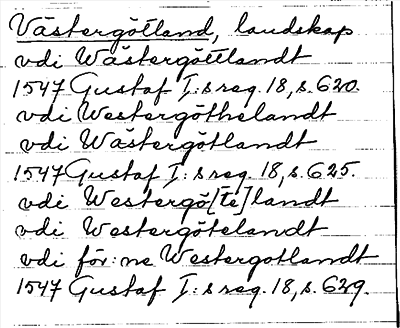 Västergötland, landskap
vdi Wästergöttlandt
1547 Gustaf I:s reg. 18, s. 620.
vdi Westergöthelandt
vdi Wästergötlandt
1547 Gustaf I:s reg. 18, s. 625.
vdi Westergö[te]landt
vdi Westergötelandt
vdi för:ne Westergotlandt
1547 Gustaf I:s reg. 18, s. 629.